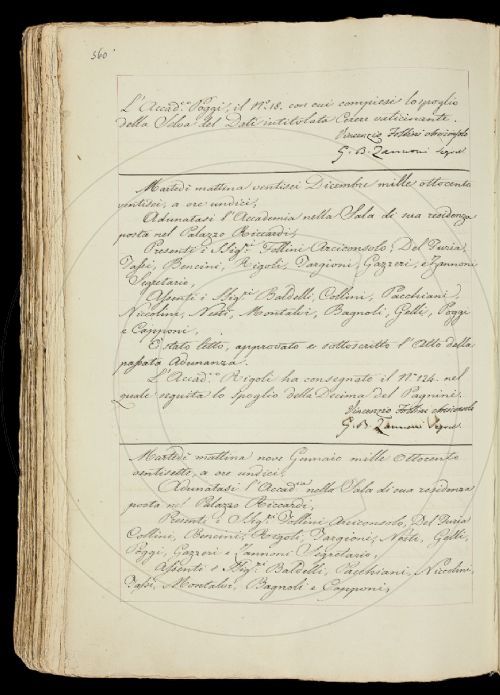 360
L'Accad.co Poggi, il N.o 18. con cui compiesi lo spoglio
della Selva del Dati intitolata Cerere vaticinante.
Vincenzio Follini Arciconsolo
G. B. Zannoni Segret.
Martedì mattina ventisei Dicembre mille ottocento
ventisei, a ore undici,
Adunatasi l'Accademia nella Sala di sua residenza
posta nel Palazzo Riccardi,
Presenti i Sig.ri Follini Arciconsolo, Del Furia,
Tassi, Bencini, Rigoli, Targioni, Gazzeri, e Zannoni
Segretario,
Assenti i Sig.ri Baldelli, Collini, Pacchiani,
Niccolini, Nesti, Montalvi, Bagnoli, Gelli, Poggi
e Capponi,
È stato letto, approvato e sottoscritto l'Atto della
passata Adunanza.
L'Accad.co Rigoli ha consegnato il N.o 124. nel
quale seguita lo Spoglio della Decima del Pagnini.
Vincenzio Follini Arciconsolo
G. B. Zannoni Segret.
Martedì mattina nove Gennaio mille Ottocento
ventisette, a ore undici,
Adunatasi l'Accad.ia nella Sala di sua residenza
posta nel Palazzo Riccardi,
Presenti i Sig.ri Follini Arciconsolo, Del Furia
Collini, Bencini, Rigoli, Targioni, Nesti, Gelli,
Poggi, Gazzeri e Zannoni Segretario,
Assenti i Sig.ri Baldelli, Pacchiani, Niccolini,
Tassi, Montalvi, Bagnoli e Capponi,